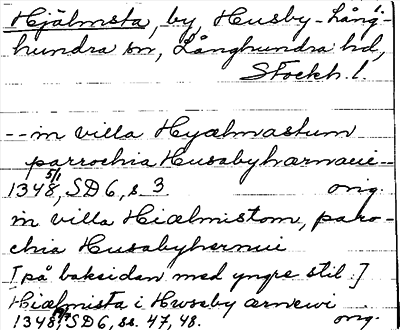 Hjälmsta, by, Husby-Lång-
hundra sn, Långhundra hd,
Stockh. l.
-- in villa Hyælmastum
parrochia Husabyhærnaui --
1348 5/1, SD 6, s. 3 orig.
in villa Hiælmistom, paro-
chia Husabyhernui
[på baksidan med yngre stil:]
Hiælmista i Hwsby ærnewi
1348, SD 6, ss. 47, 48. orig.